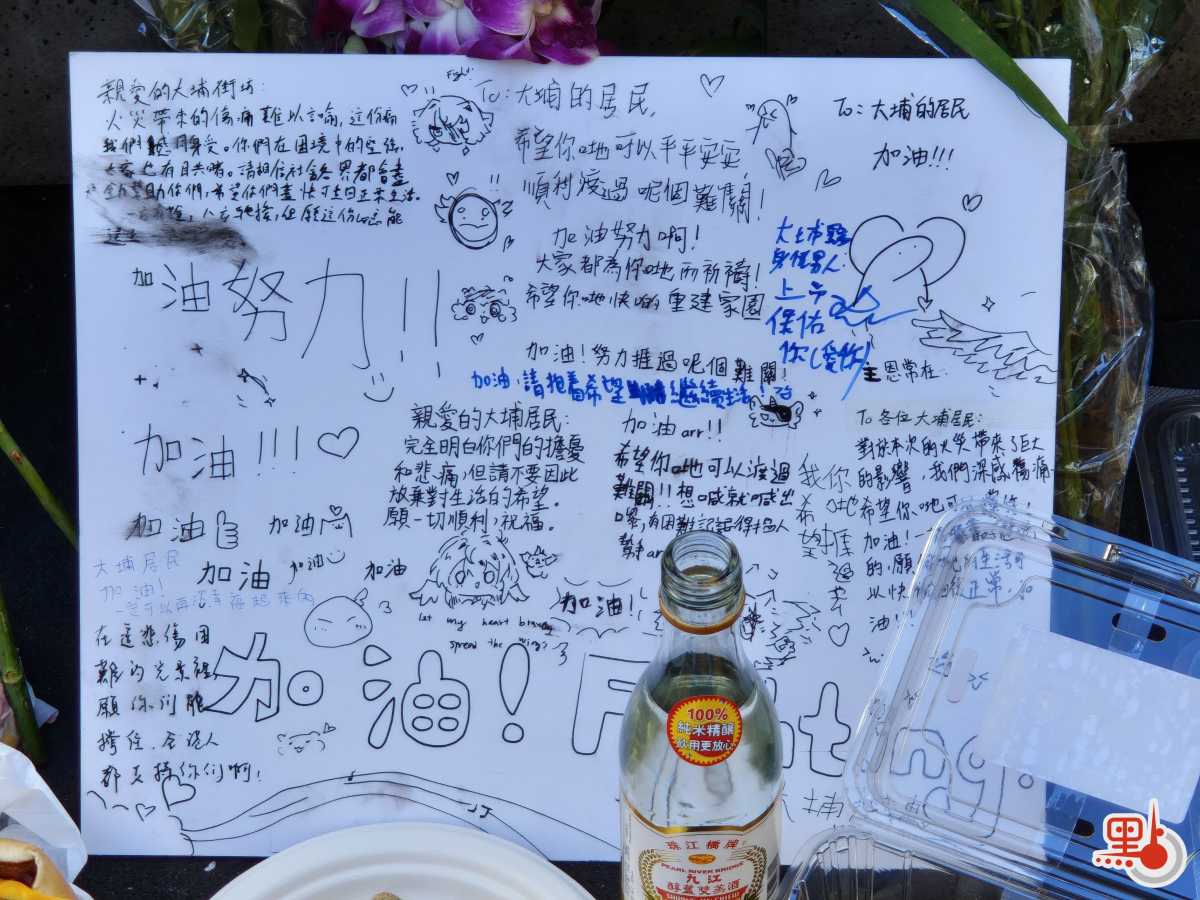 親愛的大埔街坊:
火災帶來的傷痛難以討論,這份痛
我們感同身受。你們在困境中的堅強,
大家也有目共睹。請相信社會各界都會盡
助你們,希望你們盡快可重回正常生活。
但願這份心意能
Fight!
To:大埔的居民,
希望你哋可以平平安安,
順利渡過呢個難關!
To:大埔的居民
加油!!!
加油努力!!
加油努力啊!
大家都為你哋而祈禱!
希望你哋快啲重建家園
加油!努力捱過呢個難關!
加油,請抱着希望繼續生活!
上帝
保佑
你(愛你)
主恩常在
加油!!!
親愛的大埔居民:
完全明白你們的擔憂
和悲痛,但請不要因此
放棄對生活的希望。
願一切順利,祝福。
加油arr!!
希望你哋可以渡過
難關!!想喊就喊出
嚟,有困難記得搵人
幫arr
To 各位大埔居民:
對於本次的火災帶來了巨大
的影響,我們深感傷痛
希望你哋可
加油!一
的,願
以快 正常,加
油!!
加油
加油
加油
加油
加油
大埔居民
加油!
let my heart bravely
spread the wings
加油!
在這悲傷困
難的光景裡,
願你們能
撐住,全港人
都支撐你們啊!
加油!
大埔
100%
純米精釀
飲用更放心
珠江橋牌
PEARL RIVER BRIDGE
九江
醇舊雙蒸酒
點